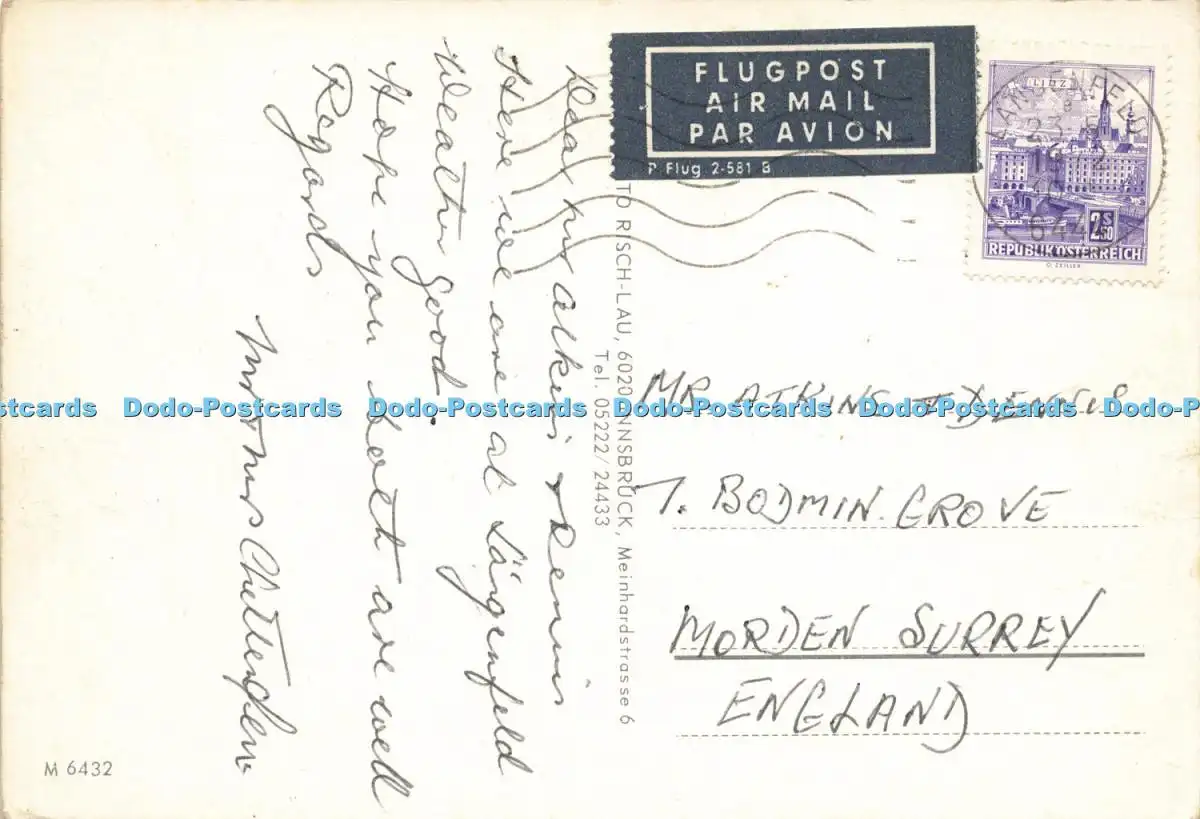 FLUGPOST
AIR MAIL
PAR AVION
P Flug 2-581 B
LINZ
2S50
REPUBLIK ÖSTERREICH
O. ZEILER
LÄNGENFELD
6444
Dear Mr Atkins + Dennis
Here we are at Längenfeld
Weather good.
Hope you both are well
Regards
Mr & Mrs Chittenden
TO RISCH-LAU, 6020 INNSBRUCK, Meinhardstrasse 6
Tel. 05222/24433
MR. ATKINS + DENNIS
7. BODMIN. GROVE
MORDEN SURREY
ENGLAND
M 6432
postcards Dodo-Postcards Dodo-Postcards Dodo-Postcards Dodo-Postcards Dodo-P